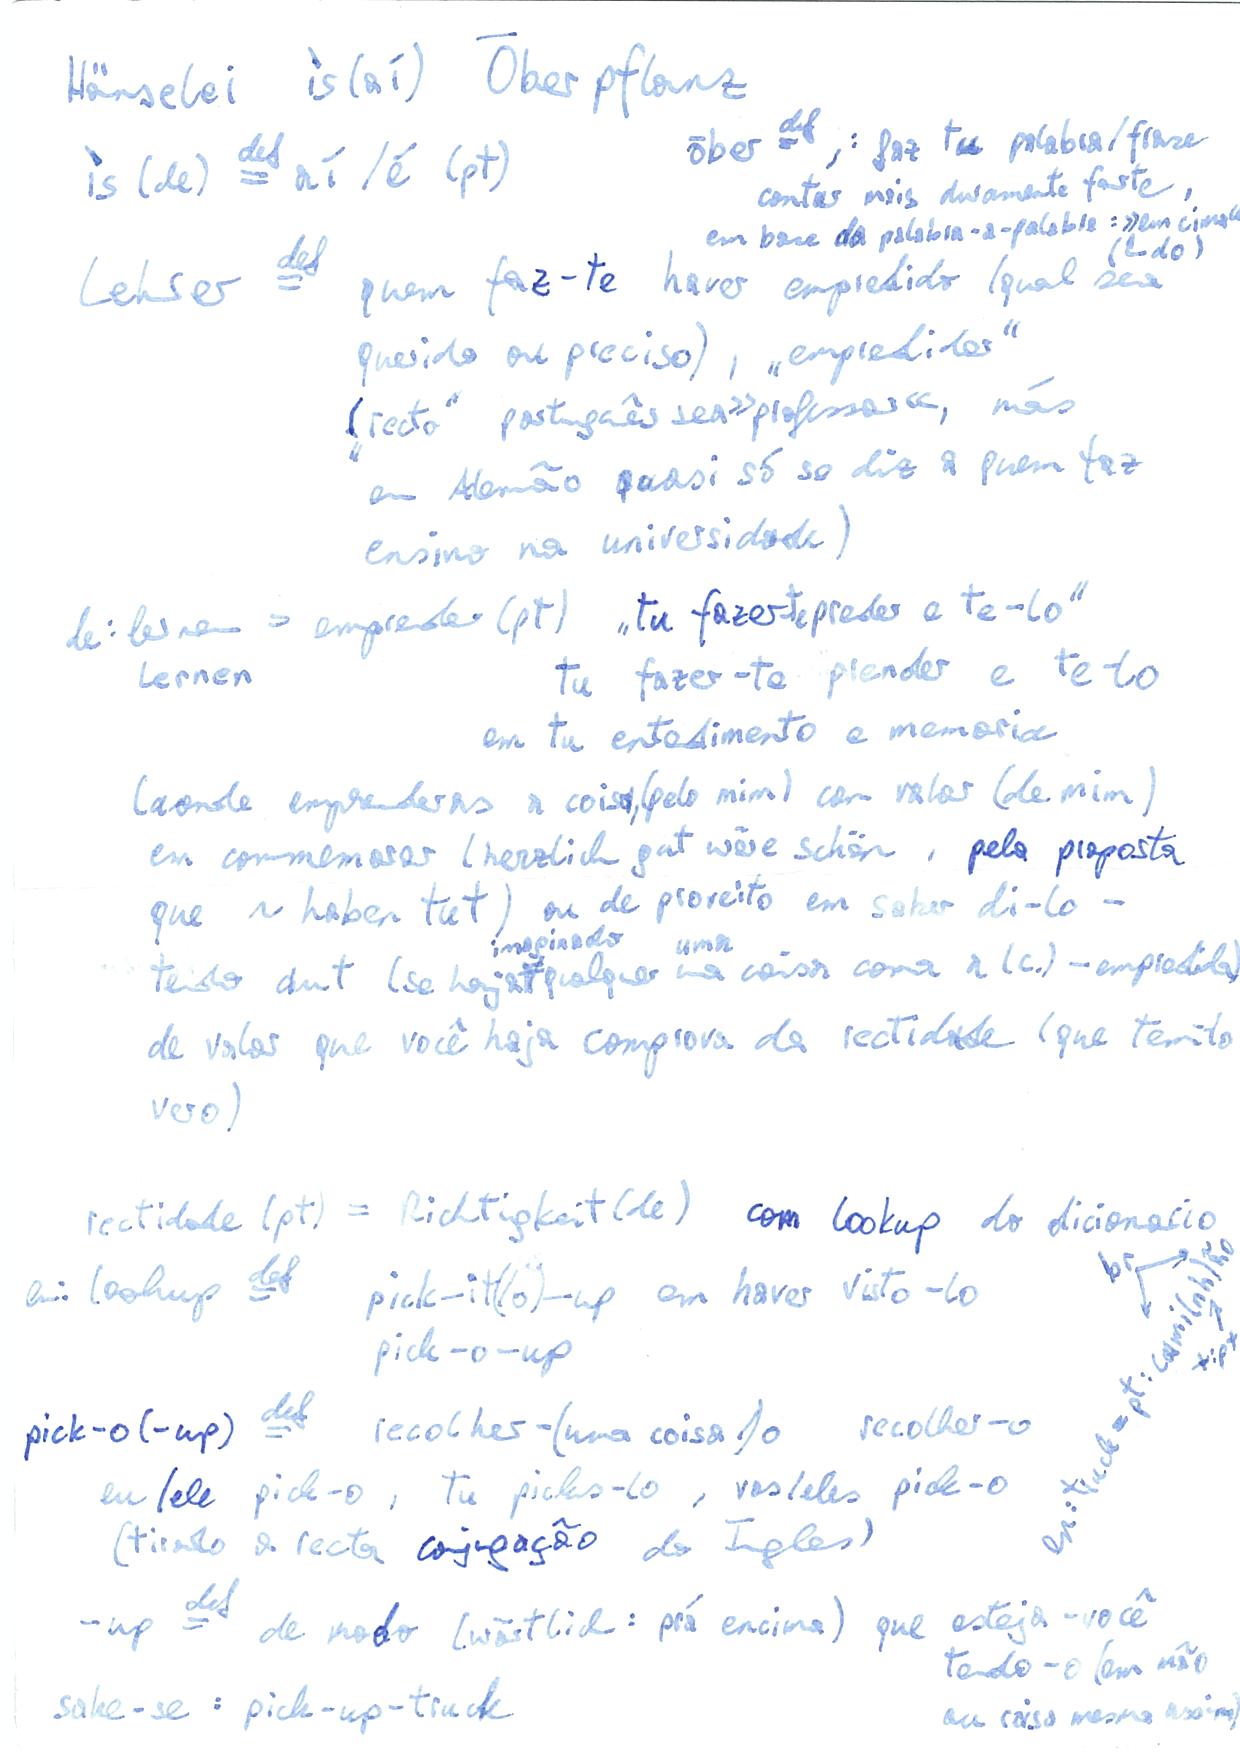 Hänselei ìs(aí) Ōberpflanz
ìs (de) def= aí /é (pt)
ōber def= ,: faz tu palabra/frase
contar mais duramente forte,
em base da palabra-a-palabra: »em cima«
(L-do)
Lehser def= quem faz-te haver empredido (qual sea
querido ou preciso), „empredidor“
(„recto“ português sea »professor«, más
em Alemão quasi só se diz a quem faz
ensino na universidade)
de: lernen = emprender (pt) „tu fazer-te preder e te-lo“
Lernen tu fazer-te prender e te-lo
em tu entedimento e memoria
(aonde emprenderas a coisa, (pelo mim) com valor (de mim)
em commemorar (herzlich gut wäre schön, pela proposta
que ~ haben tut) ou de proveito em saber di-lo -
imaginado uma
tendo dut (se hajat qualquer una coisa coma a (c.) - empredida)
de valor que você haja comprova da rectidade (que temilo
vero)
rectidade (pt) = Richtigkeit (de) com lookup do dicionario
en: lookup def= pick-it(lö)-up em haver visto-lo
pick-o-up
pick-o(-up) def= recolher-(uma coisa)/o recolher-o
eu/ele pick-o, tu picks-lo, vos/eles pick-o
(tirado a recta conjugação do Ingles)
-up def= de modo (wōrtlich: prá encima) que esteja-você
tendo-o (em mão
ou coisa mesma assim)
sake-se: pick-up-truck
en: truck = pt: cami(nh)ño
br
x:pt